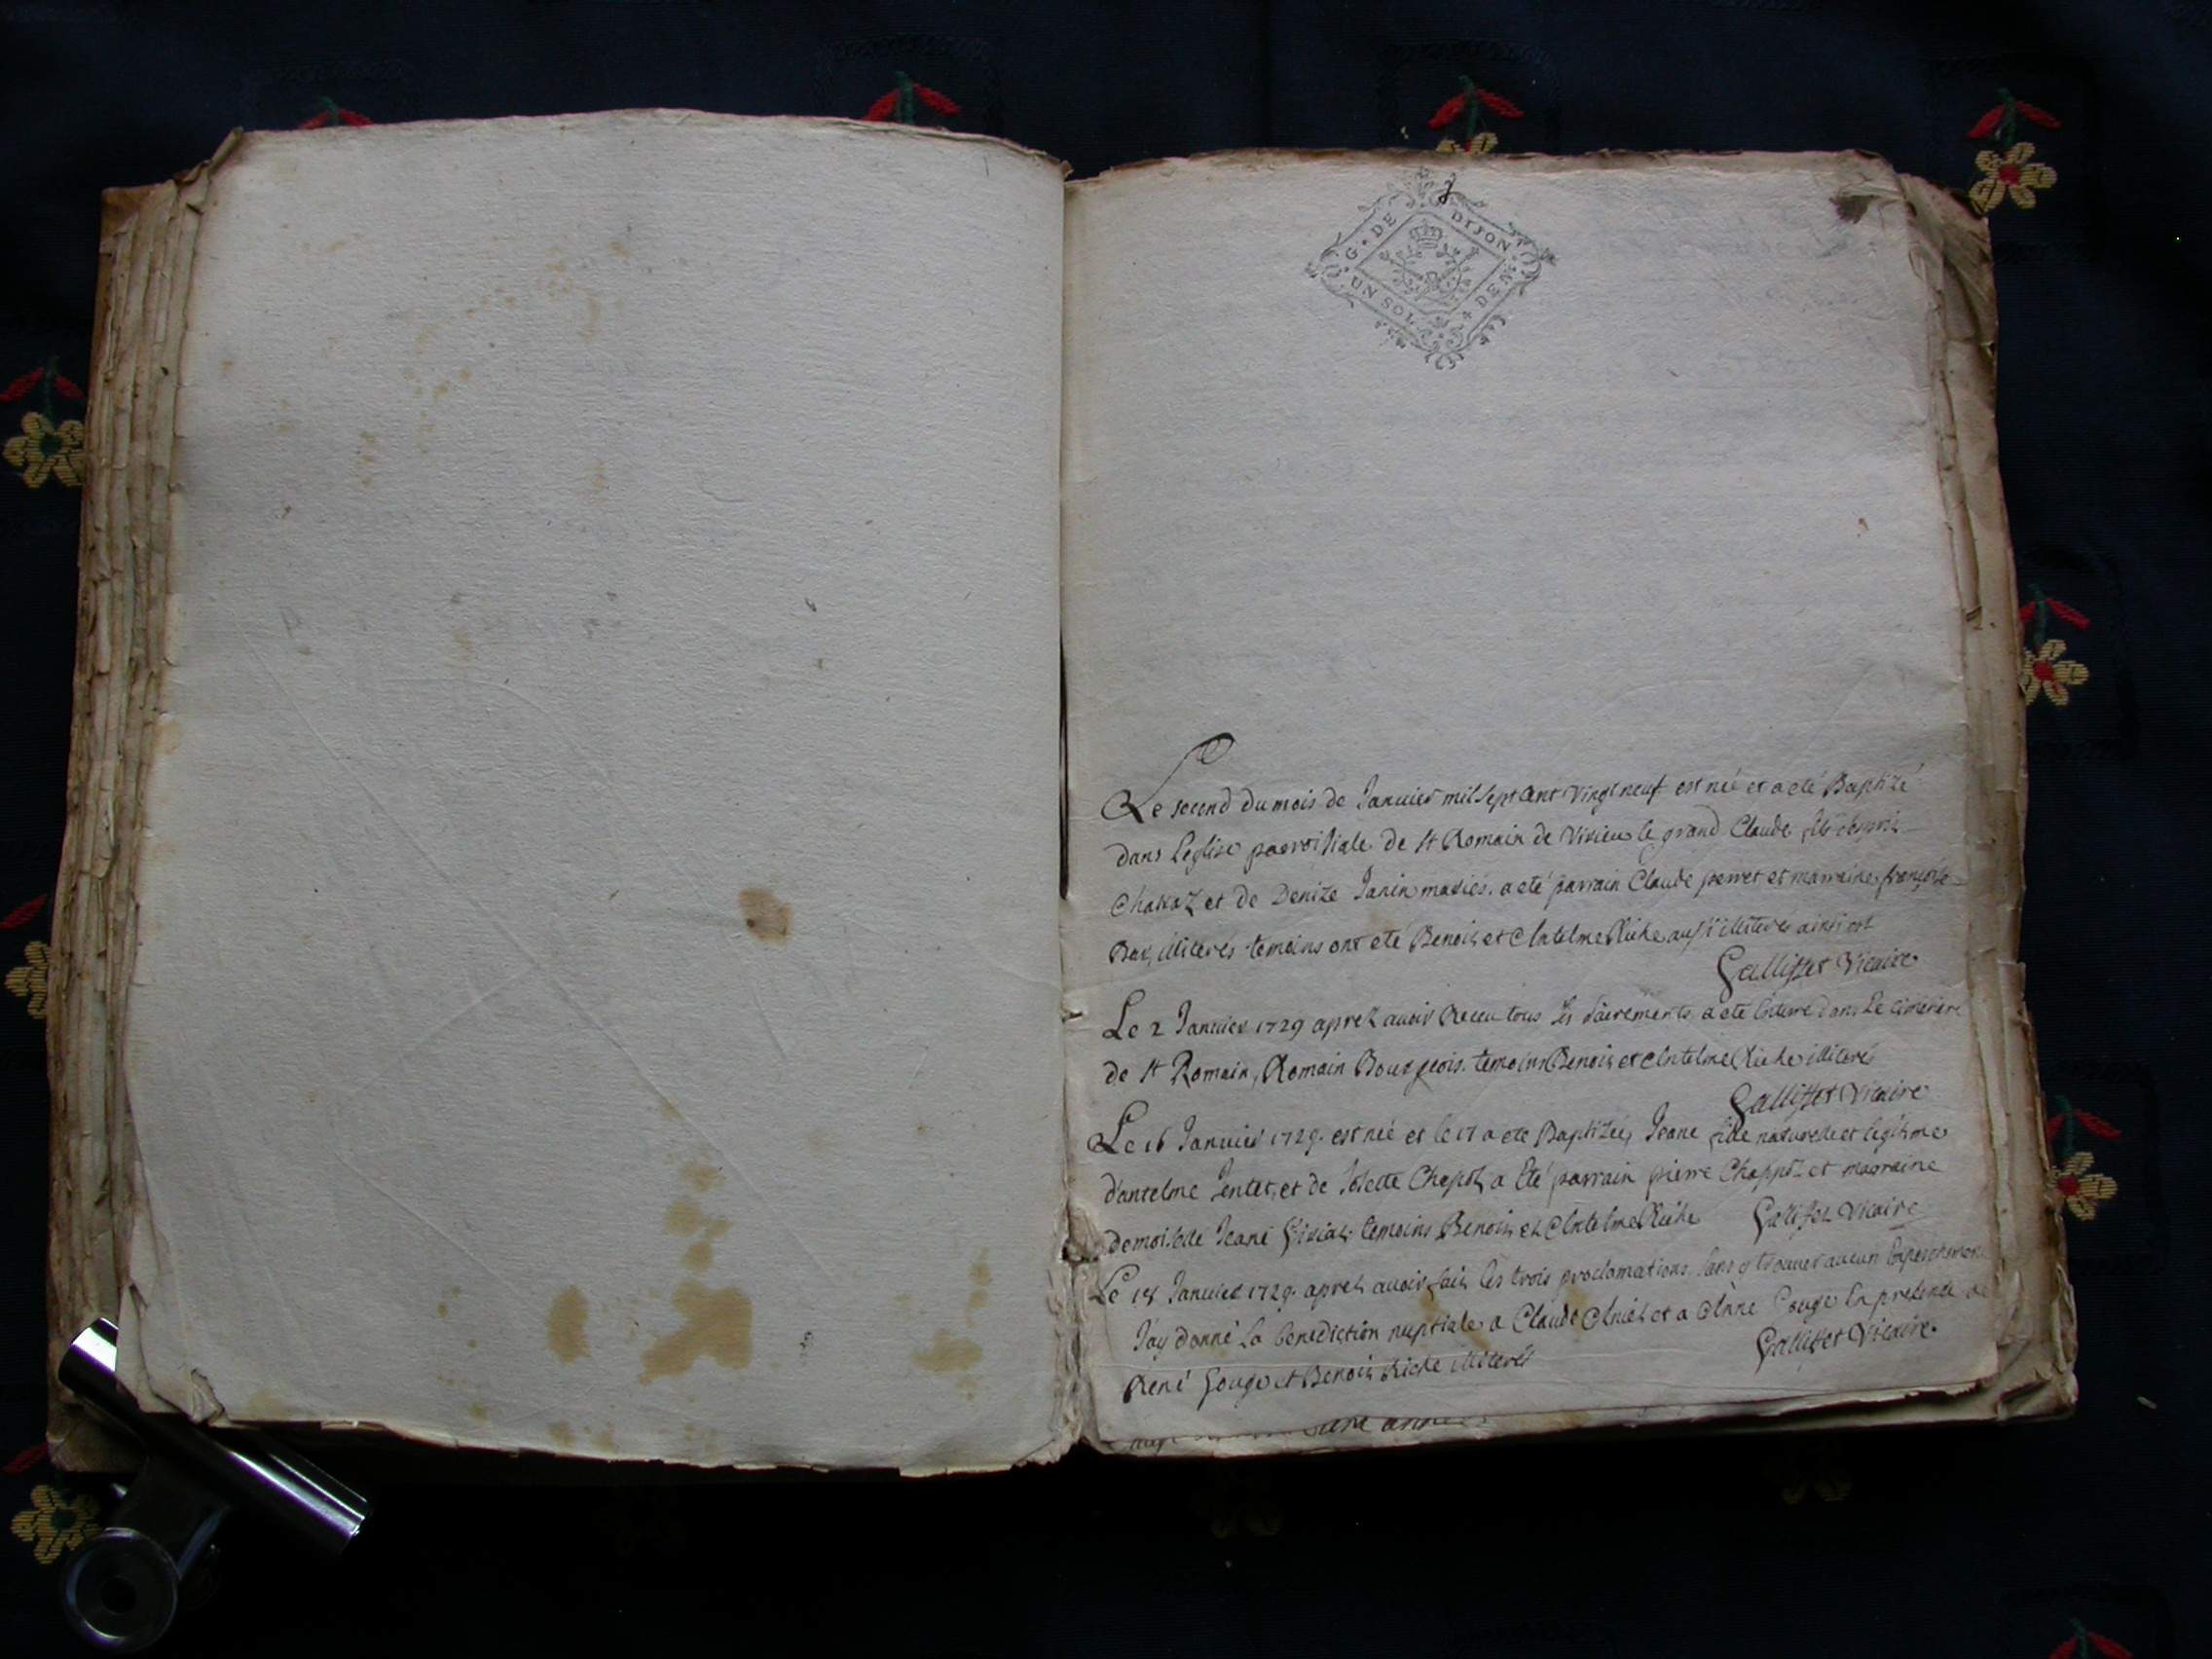 2
G. DE DIJON
UN SOL 4 DEN.
Le second du mois de Janvier mil sept cent vingt neuf est né et a eté Baptizé
dans l'eglise parroissiale de St Romain de Virieu le grand Claude fils
et de Denize Janin mariés. a eté parrain Claude perret et marraine françoise
illiterés temoins ont eté Benoit et Antelme Riche aussi illiterés ainsi est
Galliffet Vicaire
Le 2 Janvier 1729 aprez avoir Receu tous les sacrements, a eté enterré dans Le cimetiere
de St Romain, Romain Bourgeois. temoins Benoit et Antelme Riche illiterés
Galliffet Vicaire
Le 16 Janvier 1729. est né et le 17 a eté Baptizée, Jeane fille naturelle et legitime
d'antelme et de a Eté parrain pierre et marraine
demoiselle Jeane temoins Benoit et Antelme Riche Galliffet Vicaire
Le 18 Janvier 1729. aprez avoir fait les trois proclamations sans y trouver aucun
J'ay donné La benediction nuptiale a Claude et a Anne Gouge En presence de
René Gouge et Benoit Riche illiterés Galliffet Vicaire.